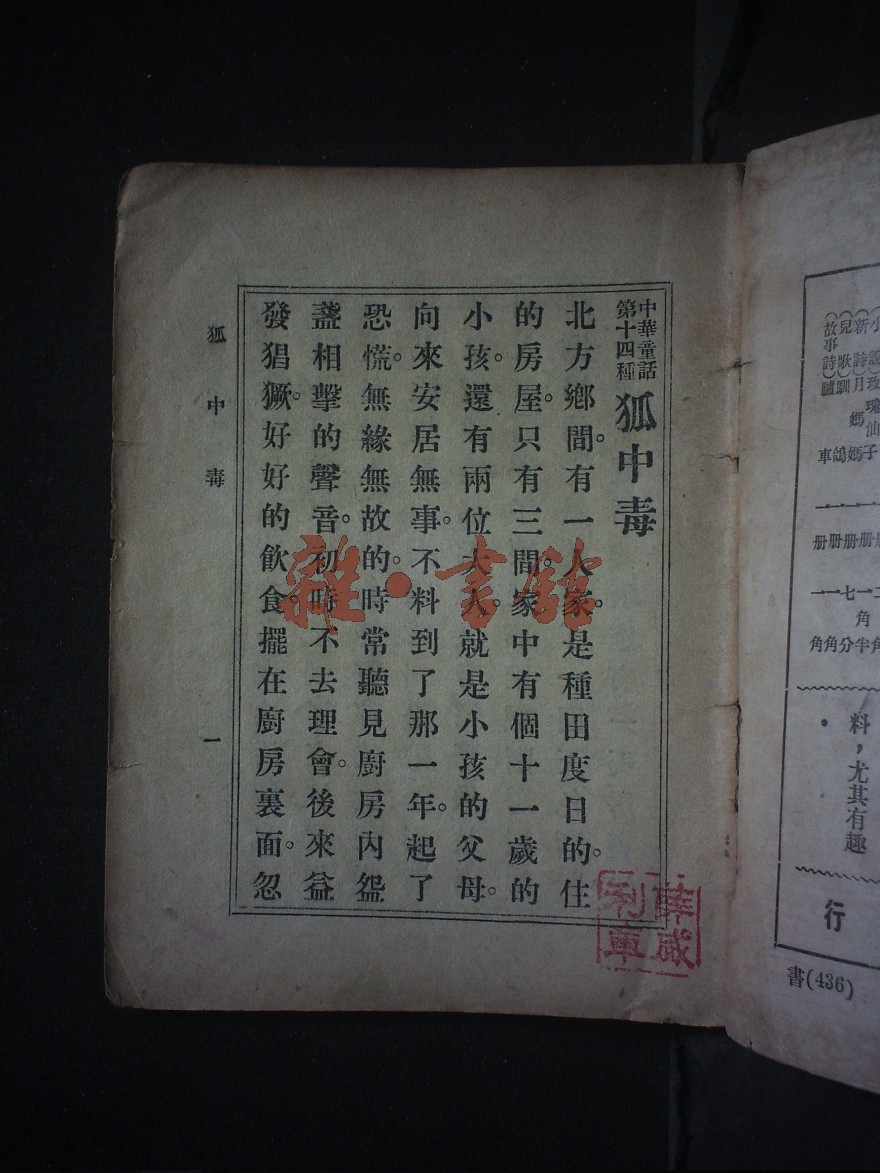 中華童話
第十四種
狐中毒
北方鄉間。有一人家。是種田度日的。住
的房屋。只有三間。家中有個十一歲的
小孩。還有兩位大人。就是小孩的父母。
向來安居無事。不料到了那一年。起了
恐慌。無緣無故的。時常聽見廚房內盌
盞相擊的聲音。初時不去理會。後來益
發猖獗。好好的飲食。擺在廚房裏面。忽
狐中毒
一
雜·書館
料，尤其有趣
行
書(436)
新詩)月
兒歌)
故事詩)
車
册册册册
角
角角分半角